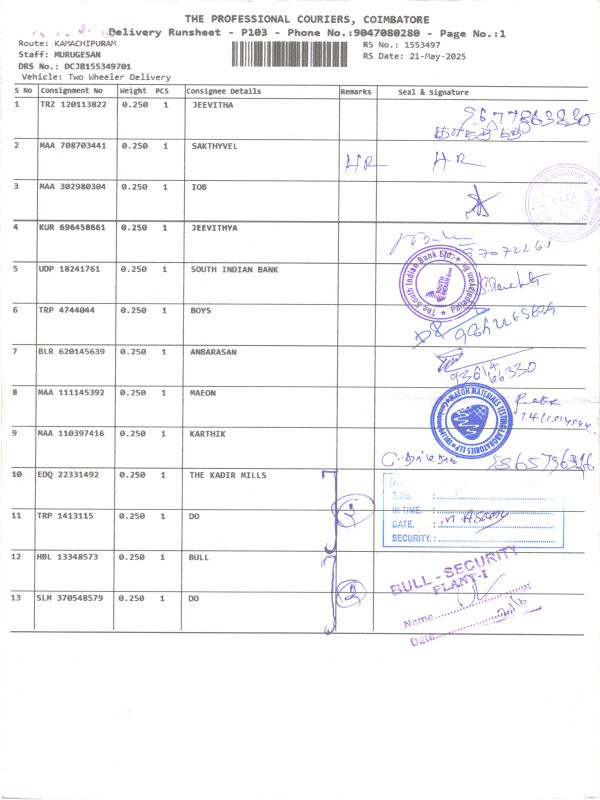 THE PROFESSIONAL COURIERS, COIMBATORE
Delivery Runsheet - P103 - Phone No.:9047080280 - Page No.:1
Route: KAMACHIPURAM RS No.: 1553497
Staff: MURUGESAN RS Date: 21-May-2025
DRS No.: DCJB155349701
Vehicle: Two Wheeler Delivery
S No Consignment No Weight PCS Consignee Details Remarks Seal & Signature
1 TRZ 120113822 0.250 1 JEEVITHA 9677863830
2 MAA 708703441 0.250 1 SAKTHYVEL HR HR
3 MAA 302980304 0.250 1 IOB
4 KUR 696458661 0.250 1 JEEVITHYA
5 UDP 18241761 0.250 1 SOUTH INDIAN BANK
The South Indian Bank Ltd
SOUTH INDIAN Bank
6 TRP 4744044 0.250 1 BOYS
7 BLR 620145639 0.250 1 ANBARASAN
8 MAA 111145392 0.250 1 MAEON
MAEON MATERIALS TESTING LABORATORIES LLP
9 MAA 110397416 0.250 1 KARTHIK
10 EDQ 22331492 0.250 1 THE KADIR MILLS
S.No. :
IN TIME. :
11 TRP 1413115 0.250 1 DO
DATE. :
SECURITY. :
12 HBL 13348573 0.250 1 BULL 2
BULL - SECURITY
PLANT-I
13 SLM 370548579 0.250 1 DO
Name
Date